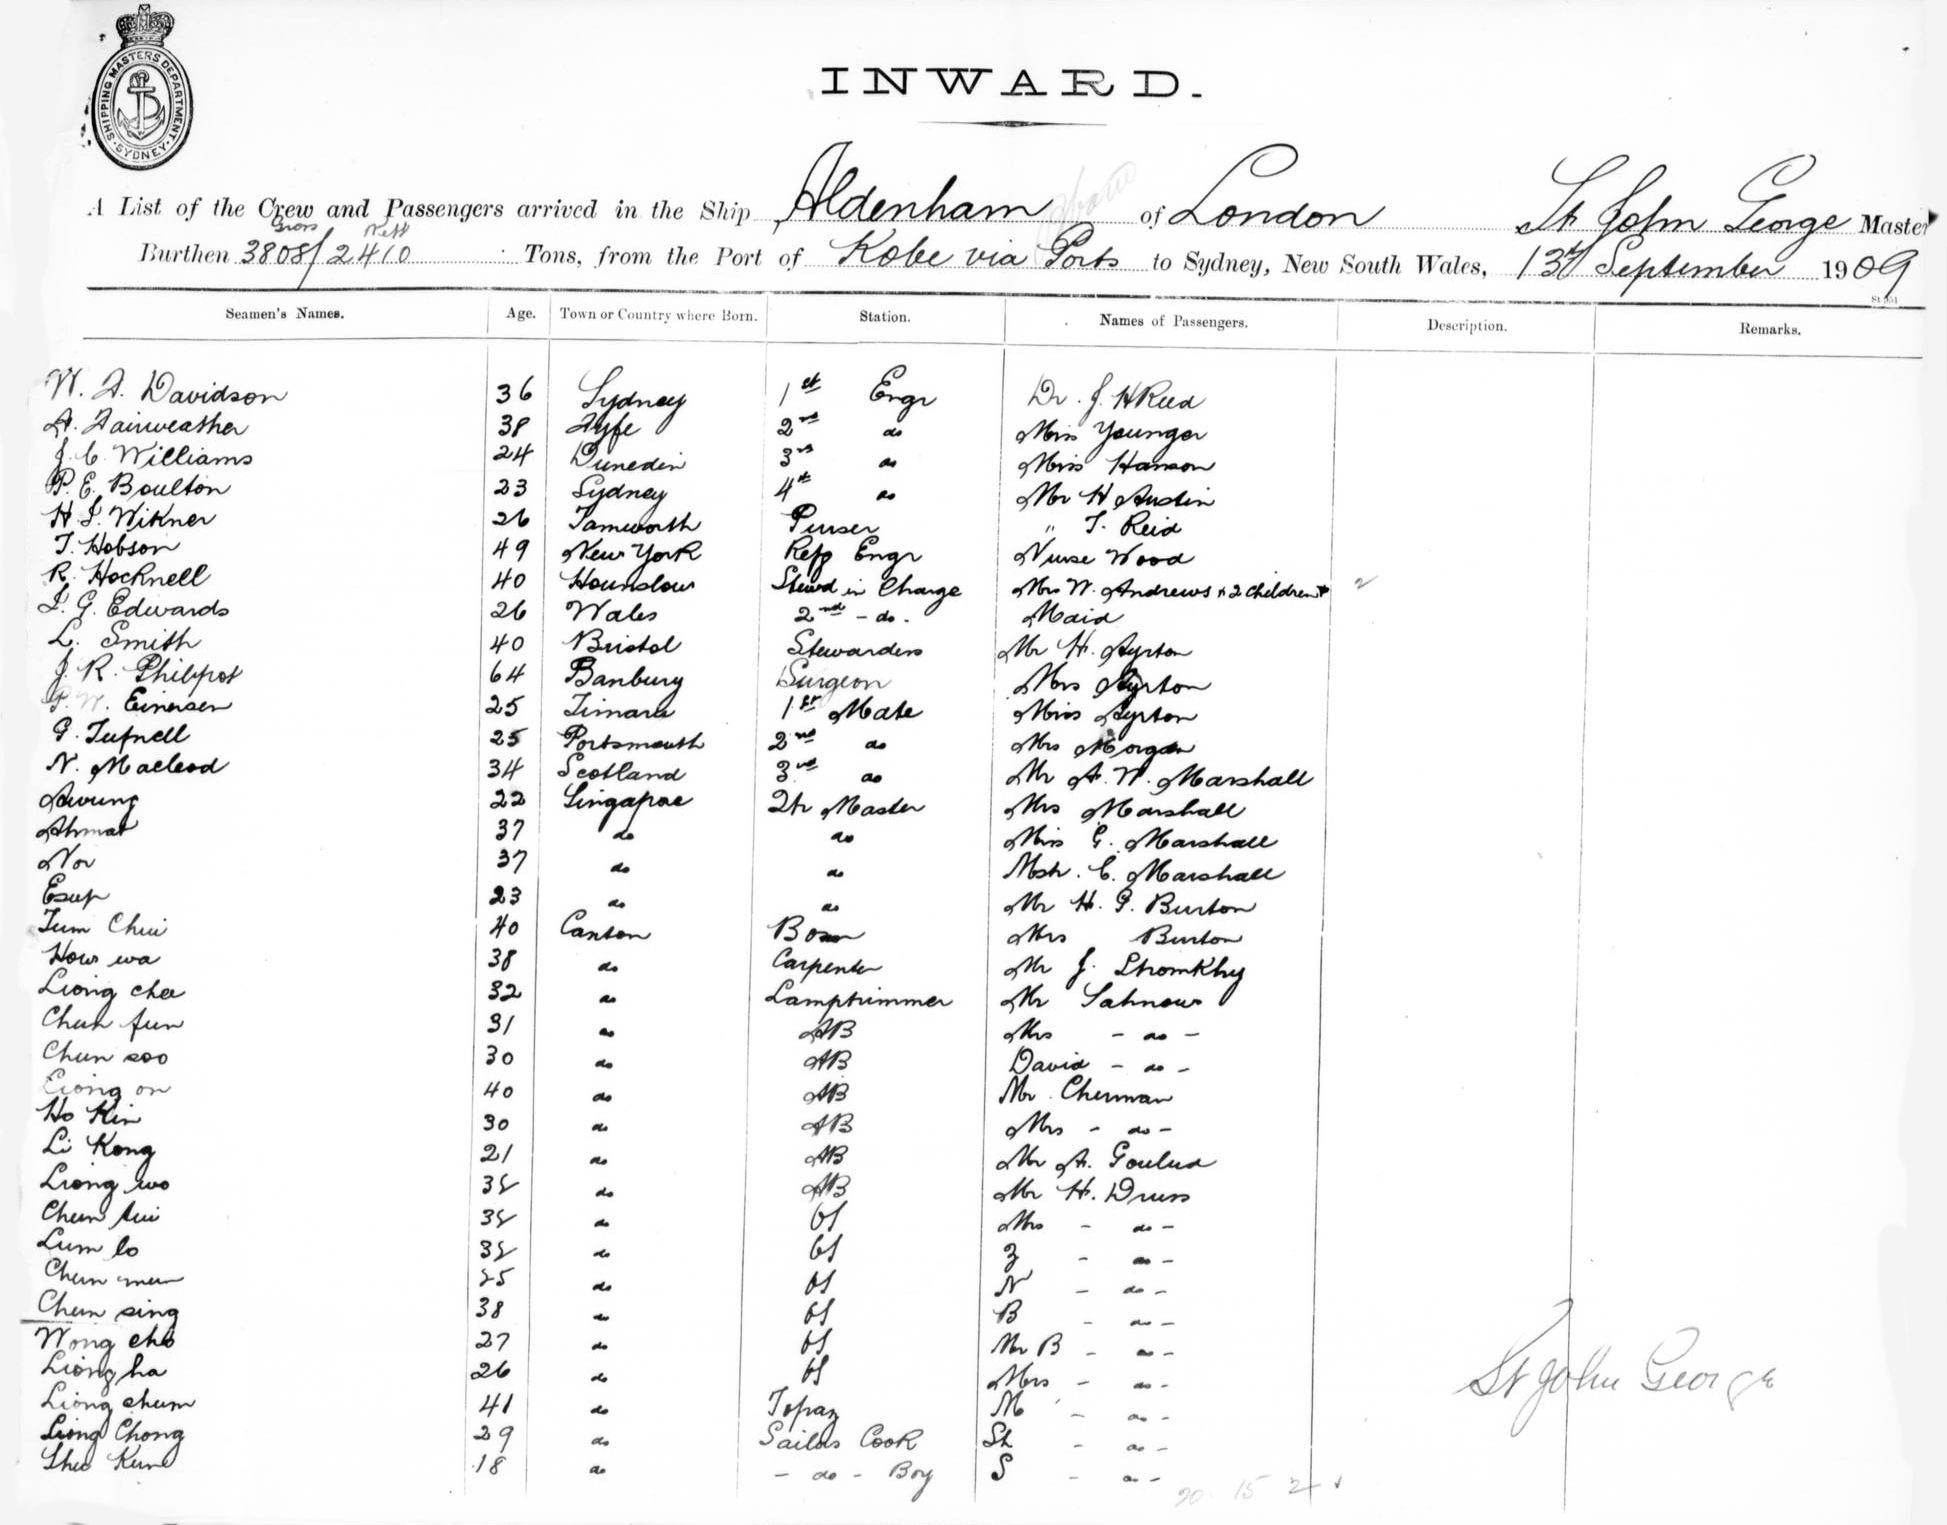 SHIPPING MASTERS DEPARTMENT
SYDNEY
INWARD.
A List of the Crew and Passengers arrived in the Ship Aldenham of London St John George Master
Gross Nett
Burthen 3808/2410 Tons, from the Port of Kobe via Ports to Sydney, New South Wales, 13th September 1909
Seamen's Names. Age. Town or Country where Born. Station. Names of Passengers. Description. Remarks.
W. A. Davidson 36 Sydney 1st Engr Dr. J. H Reed
A. Fairweather 38 Fyfe 2nd do Miss Younger
J. C. Williams 24 Dunedin 3rd do Miss Hanson
P. E. Boulton 23 Sydney 4th do Mr H Austin
H. J. Wikner 26 Tamworth Purser " T. Reid
T. Hobson 49 New York Refg Engr Nurse Wood
R. Hocknell 40 Hounslow Stewd in Charge Mrs W. Andrews + 2 Children 2
J. G. Edwards 26 Wales 2nd - do - Maid
L. Smith 40 Bristol Stewardess Mr H. Ayrton
J. R. Philpot 64 Banbury Surgeon Mrs Ayrton
P. W. Einersen 25 Timaru 1st Mate Miss Ayrton
G. Tufnell 25 Portsmouth 2nd do Mrs Morgan
N. Macleod 34 Scotland 3rd do Mr A. W. Marshall
Awung 22 Singapore Qtr Master Mrs Marshall
Ahmat 37 do do Miss G. Marshall
Nor 37 do do Mstr. C. Marshall
Esup 23 do do Mr H. G. Burton
Tum Chui 40 Canton Bosn Mrs Burton
How wa 38 do Carpenter Mr J.
Liong chee 32 do Lamptrimmer Mr Sahnow
Chun fun 31 do AB Mrs - do -
Chun soo 30 do AB David - do -
Liong on 40 do AB Mr Cherman
Ho Kin 30 do AB Mrs - do -
Li Kong 21 do AB Mr A. Goulud
Liong wo 38 do AB Mr H. Druss
Chun tui 38 do OS Mrs - do -
Lum lo 38 do OS Z - do -
Chun mun 25 do OS N - do -
Chun sing 38 do OS B - do -
Wong cho 27 do OS Mr B - do -
Liong ha 26 do OS Mrs - do -
Liong chum 41 do Topaz M - do -
Liong Chong 29 do Sailors Cook St - do -
Kun 18 do - do - Boy S - do -
20 15 2
St John George